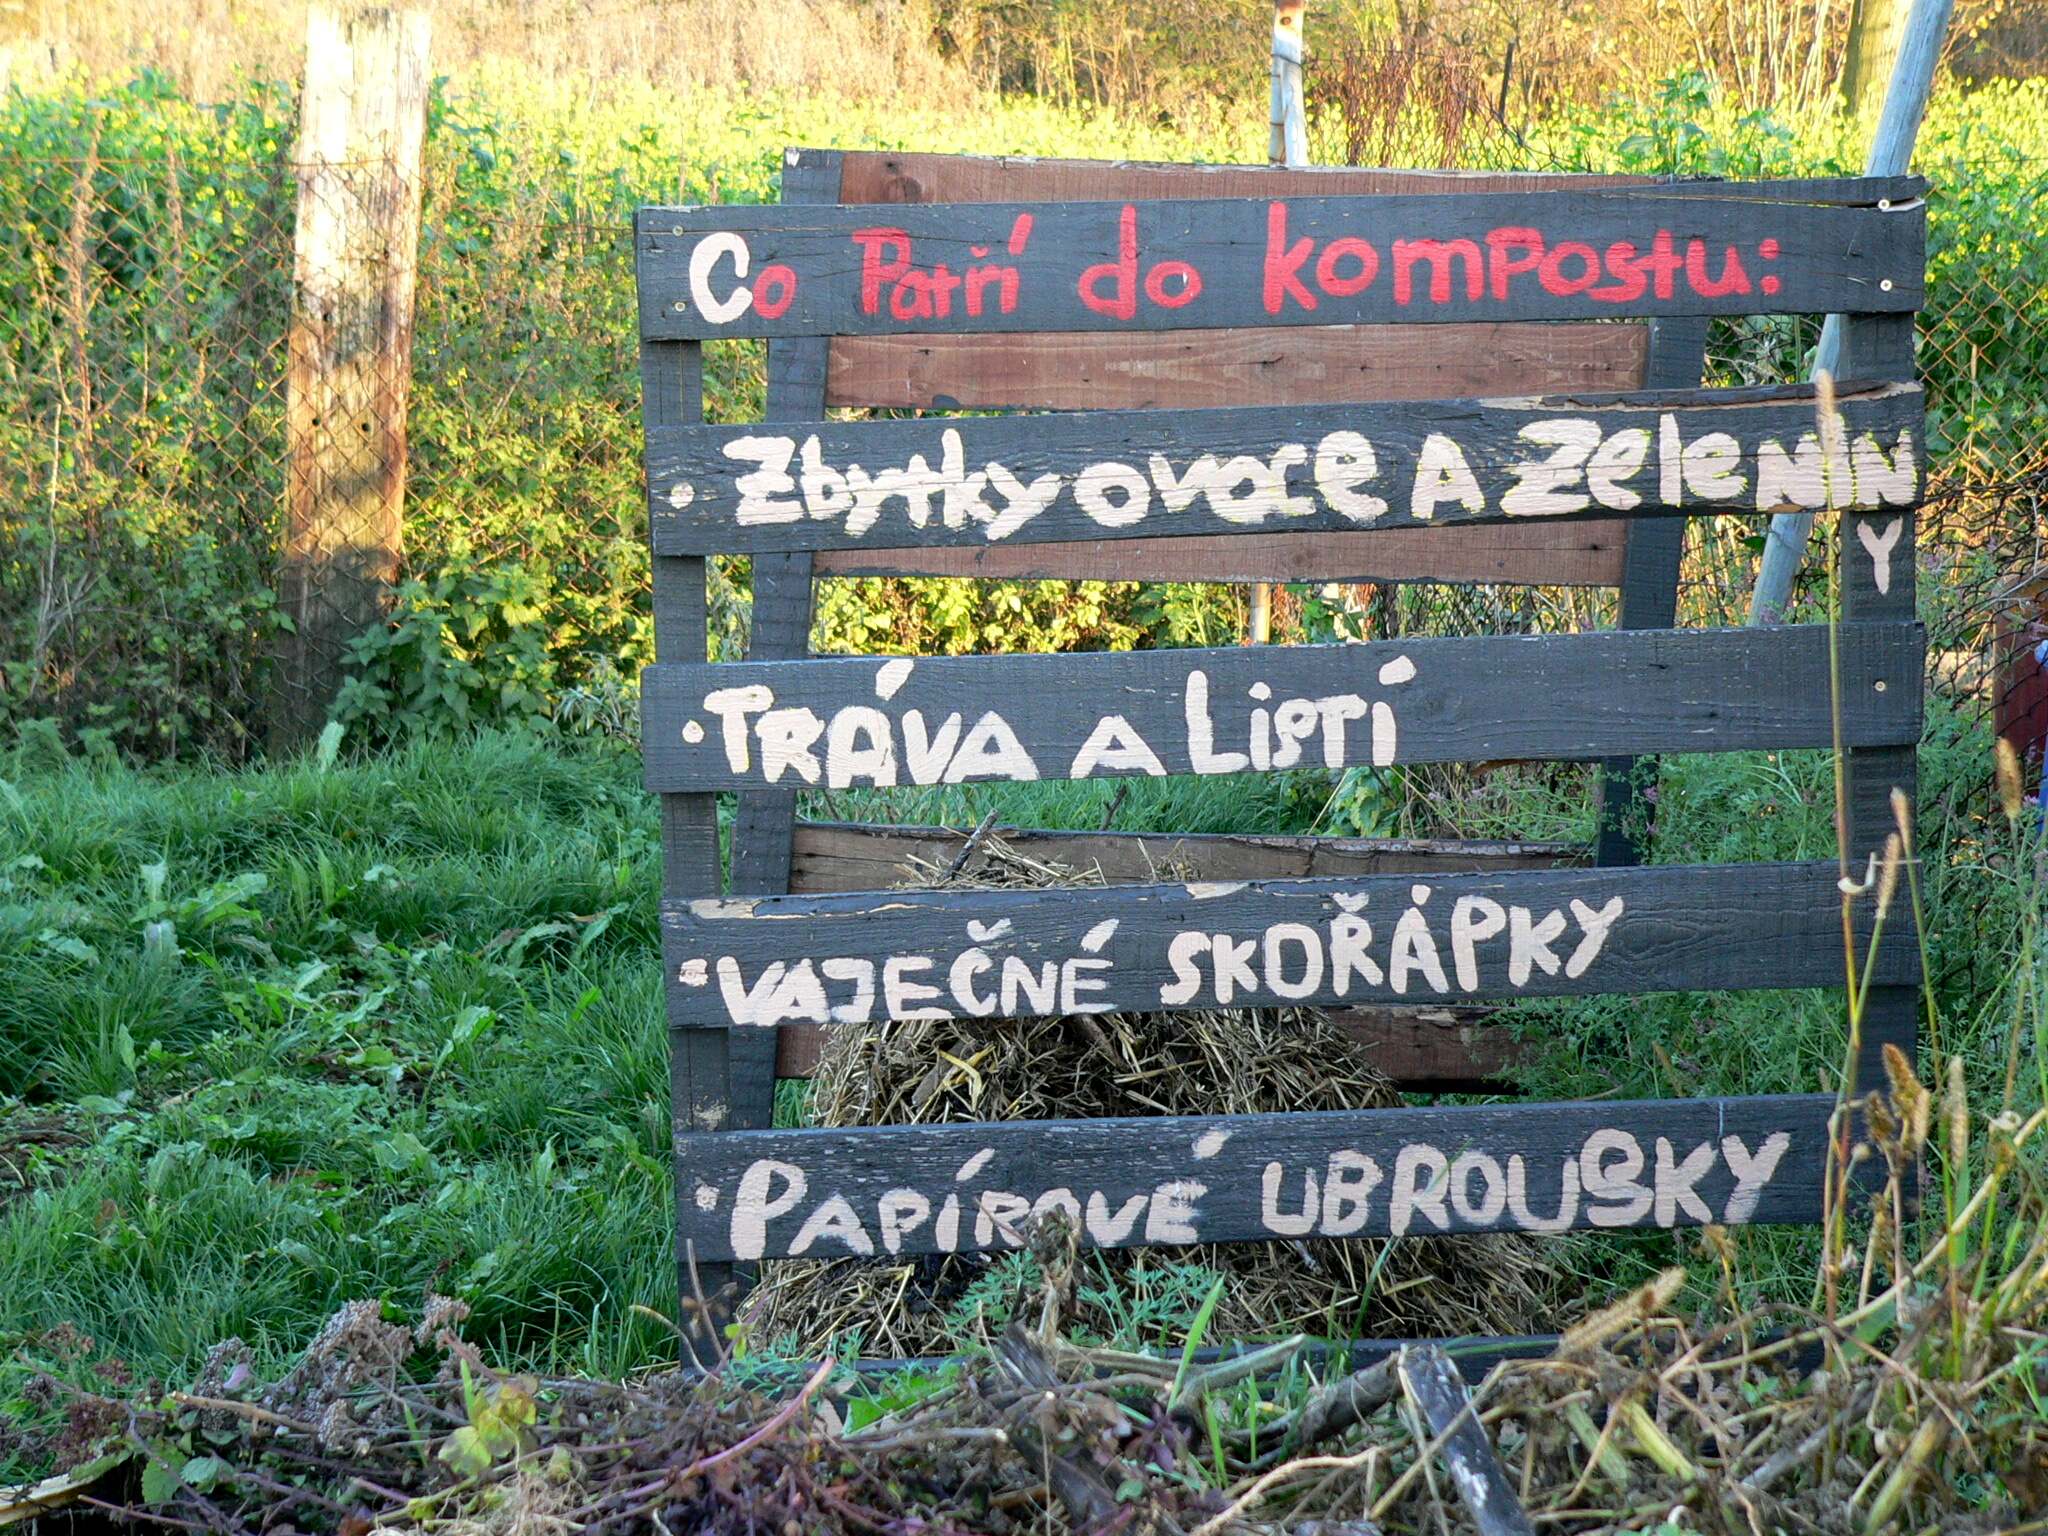 Co Patří do kompostu:
• Zbytky ovoce A Zelenin
Y
• TRÁVA A LISTÍ
• VAJEČNÉ SKOŘÁPKY
• PAPÍROVÉ UBROUSKY